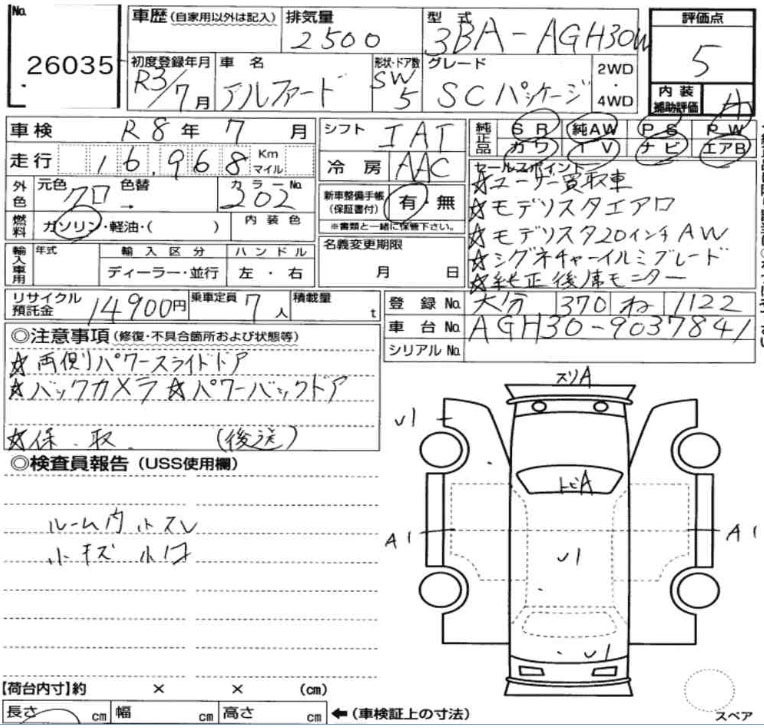 No.
26035
車歴 (自家用以外は記入)
排気量
2500
型式
3BA-AGH30W
評価点
5
内装
補助評価
A
初度登録年月
R3/7月
車名
アルファード
形状・ドア数
SW
5
グレード
SCパッケージ
2WD
・
4WD
車検
R8年 7月
シフト
IAT
純正品
SR 純AW PS PW
カワ TV ナビ エアB
走行
16,968 Km
マイル
冷房
AAC
外色
元色
クロ
色替
→
カラーNo.
202
新車整備手帳
(保証書付)
有・無
※書類と一緒に保管下さい。
セールスポイント
☆ユーザー買取車
☆モデリスタエアロ
☆モデリスタ20インチAW
☆シグネチャーイルミグレード
☆純正後席モニター
燃料
ガソリン・軽油・( )
内装色
名義変更期限
月 日
輸入車用
年式
輸入区分
ハンドル
ディーラー・並行
左・右
リサイクル
預託金
14900円
乗車定員
7人
積載量
t
登録No.
大分 370 ね 1122
車台No.
AGH30-9037841
シリアルNo.
◎注意事項 (修復・不具合箇所および状態等)
☆両側パワースライドドア
☆バックカメラ ☆パワーバックドア
☆保.取. (後送)
◎検査員報告 (USS使用欄)
ルーム内 小スレ
小キズ 小凹
スリA
U1
トビA
A1
A1
U1
U1
【荷台内寸】約 × × (cm)
長さ cm 幅 cm 高さ cm ←(車検証上の寸法)
スペア